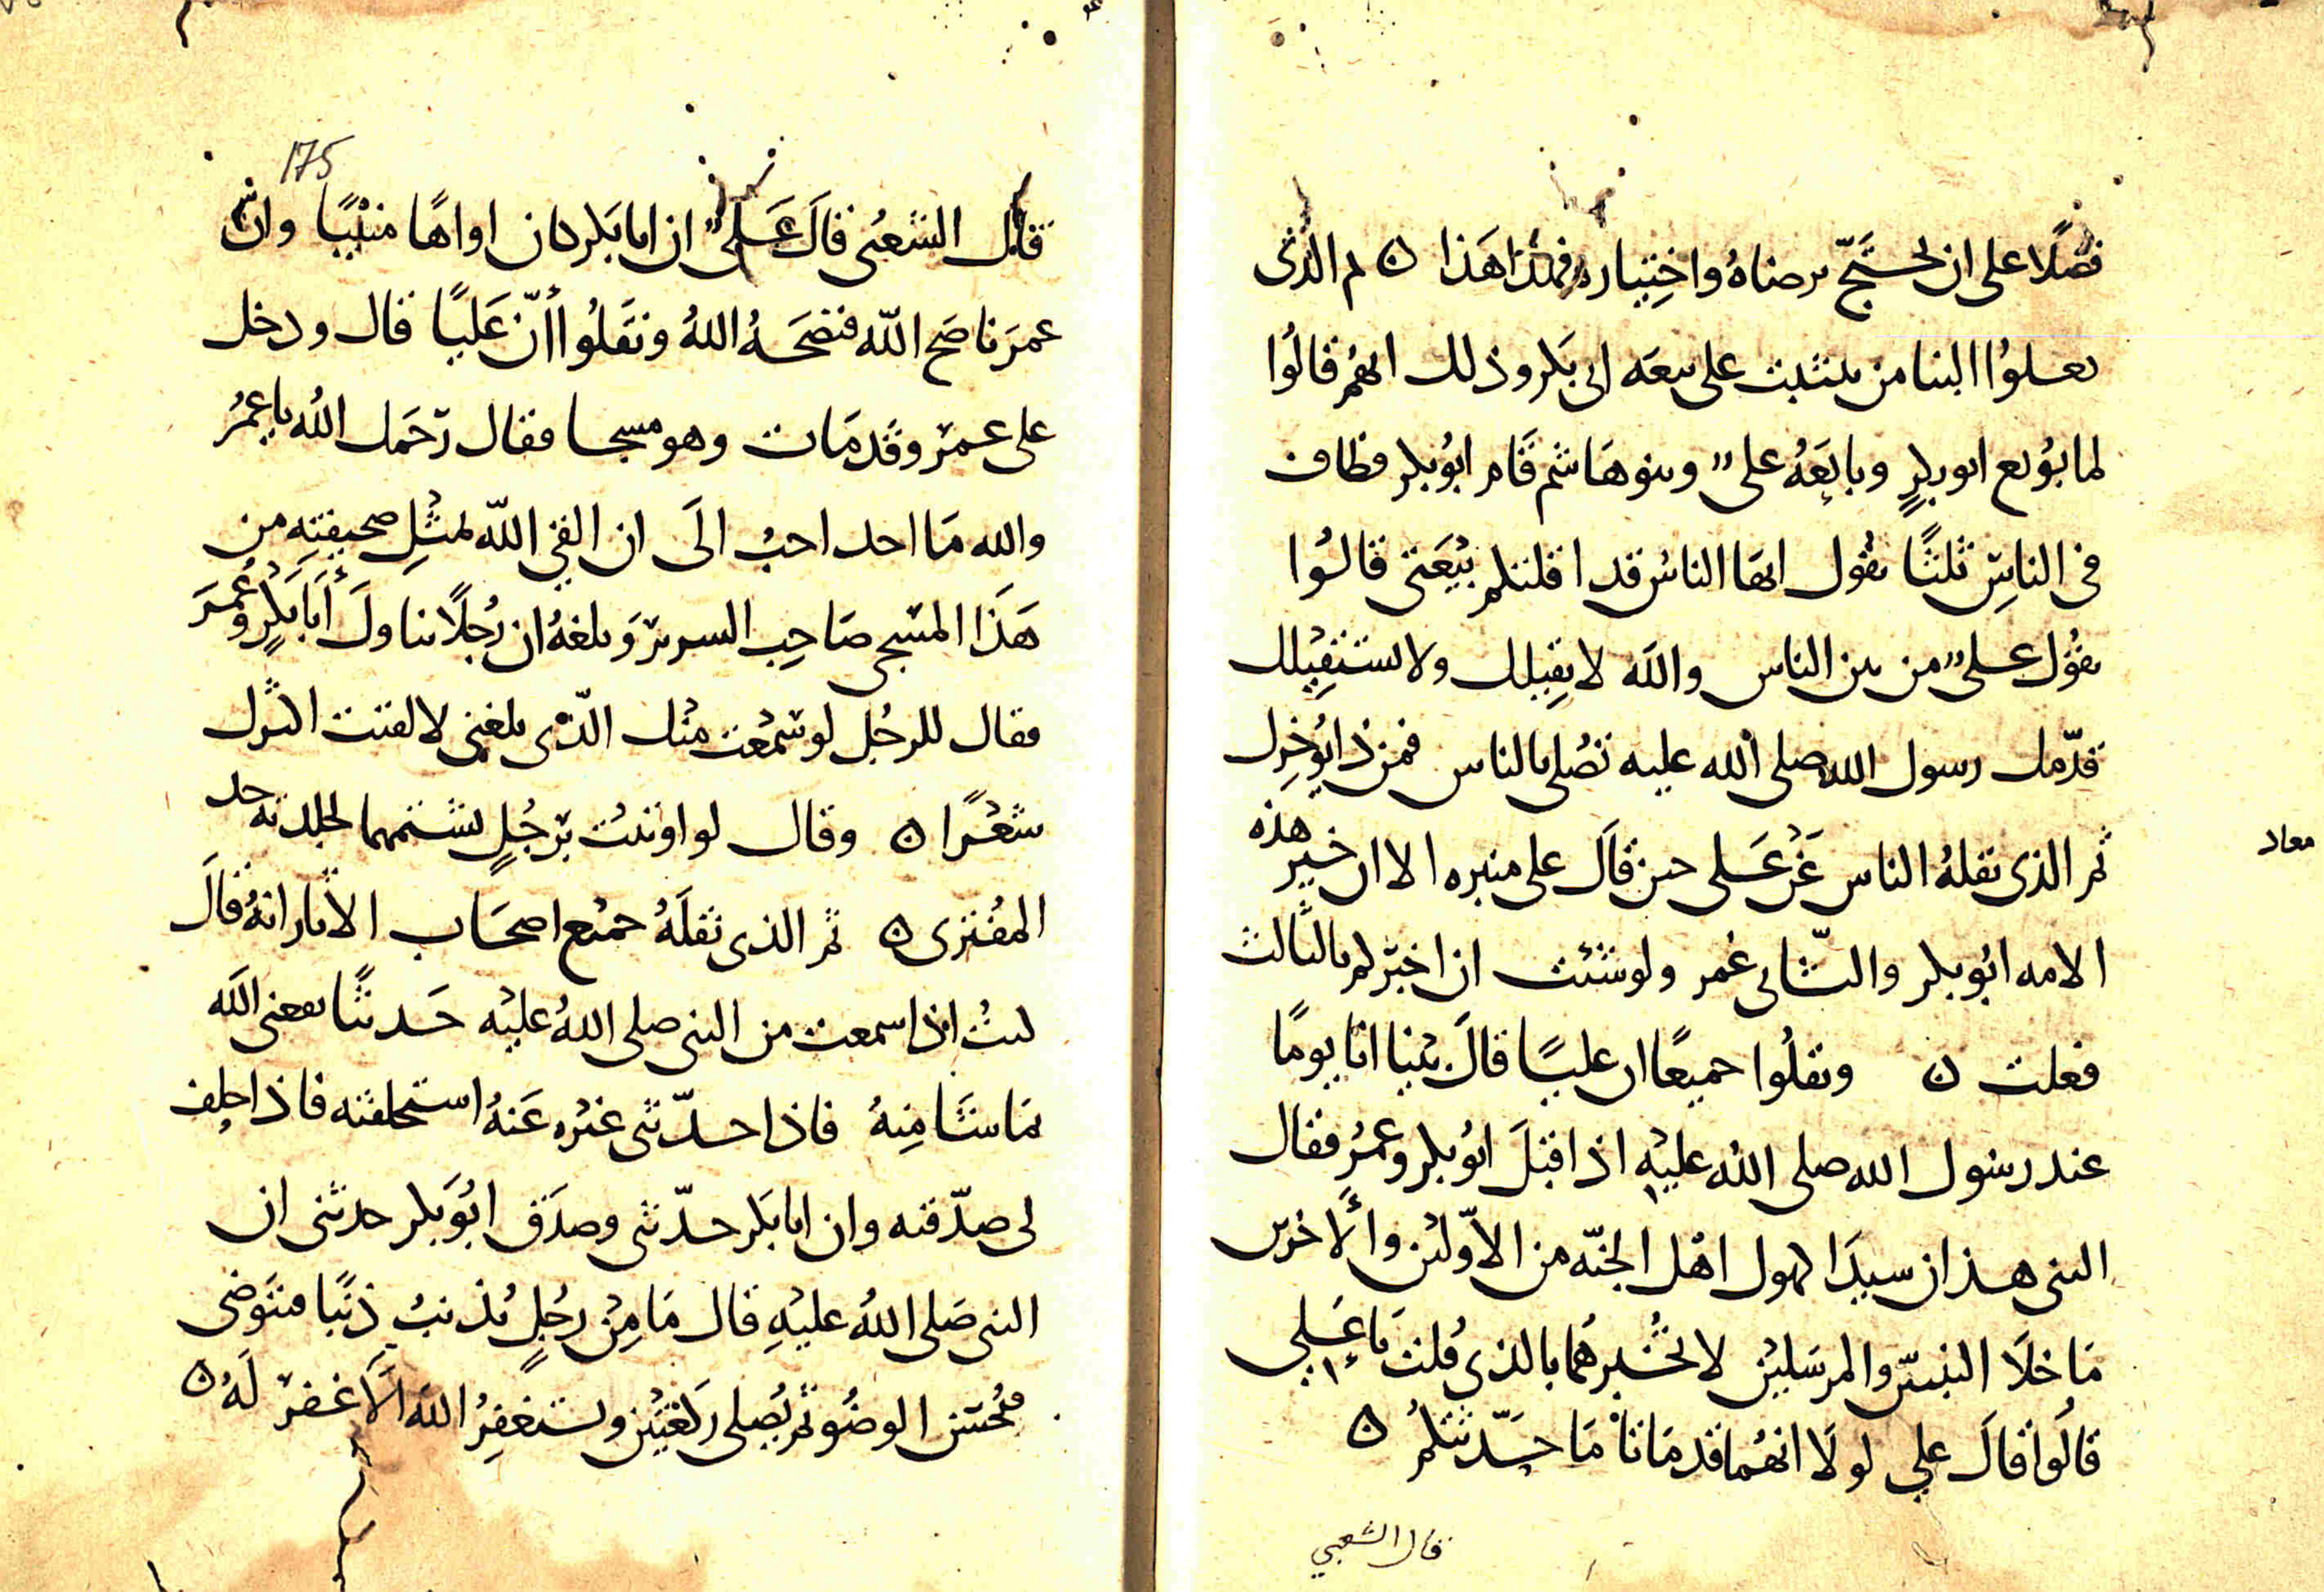 فضلا على ان نحتج برضاه واختياره فهذا هذا ن ثم الذي
نقلوا الينا من تثبت على بيعه ابي بكر وذلك انهم قالوا
لما بويع ابو بكر وبايعه علي وبنو هاشم قام ابو بكر فطاف
في الناس ثلثا يقول ايها الناس قد اقلتكم بيعتي قالوا
يقول علي من بين الناس والله لا نقيلك ولا نستقيلك
قدمك رسول الله صلى الله عليه تصلي بالناس فمن ذا يوخرك
ثم الذي نقله الناس عن علي حين قال على منبره الا ان خير هذه
معاد
الامه ابو بكر والثاني عمر ولو شئت ان اخبركم بالثالث
فعلت ن ونقلوا جميعا ان عليا قال بينا انا يوما
عند رسول الله صلى الله عليه اذ اقبل ابو بكر وعمر فقال
النبي هذان سيدا كهول اهل الجنه من الاولين والاخرين
ما خلا النبيين والمرسلين لا تخبرهما بالذي قلت يا علي
قالوا قال علي لولا انهما قد ماتا ما حدثتكم ن
قال الشعبي
175
قال الشعبي قال علي ان ابا بكر كان اواها منيبا وان
عمر ناصح الله فنصحه الله ونقلوا ان عليا قال ودخل
على عمر وقد مات وهو مسجا فقال رحمك الله يا عمر
والله ما احد احب الى ان القى الله بمثل صحيفته من
هذا المسجى صاحب السرير وبلغه ان رجلا تناول ابا بكر وعمر
فقال للرجل لو سمعت منك الذي بلغني لالقيت اكثرك
شعرا ن وقال لو اوتيت برجل يشتمهما لجلدته حد
المفتري ن ثم الذي نقله جميع اصحاب الاثار انه قال
كنت اذا سمعت من النبي صلى الله عليه حديثا نفعني الله
بما شا منه فاذا حدثني غيره عنه استحلفته فاذا حلف
لي صدقته وان ابا بكر حدثني وصدق ابو بكر حدثني ان
النبي صلى الله عليه قال ما من رجل يذنب ذنبا فيتوضى
فيحسن الوضو ثم يصلي ركعتين ويستغفر الله الا غفر له ن